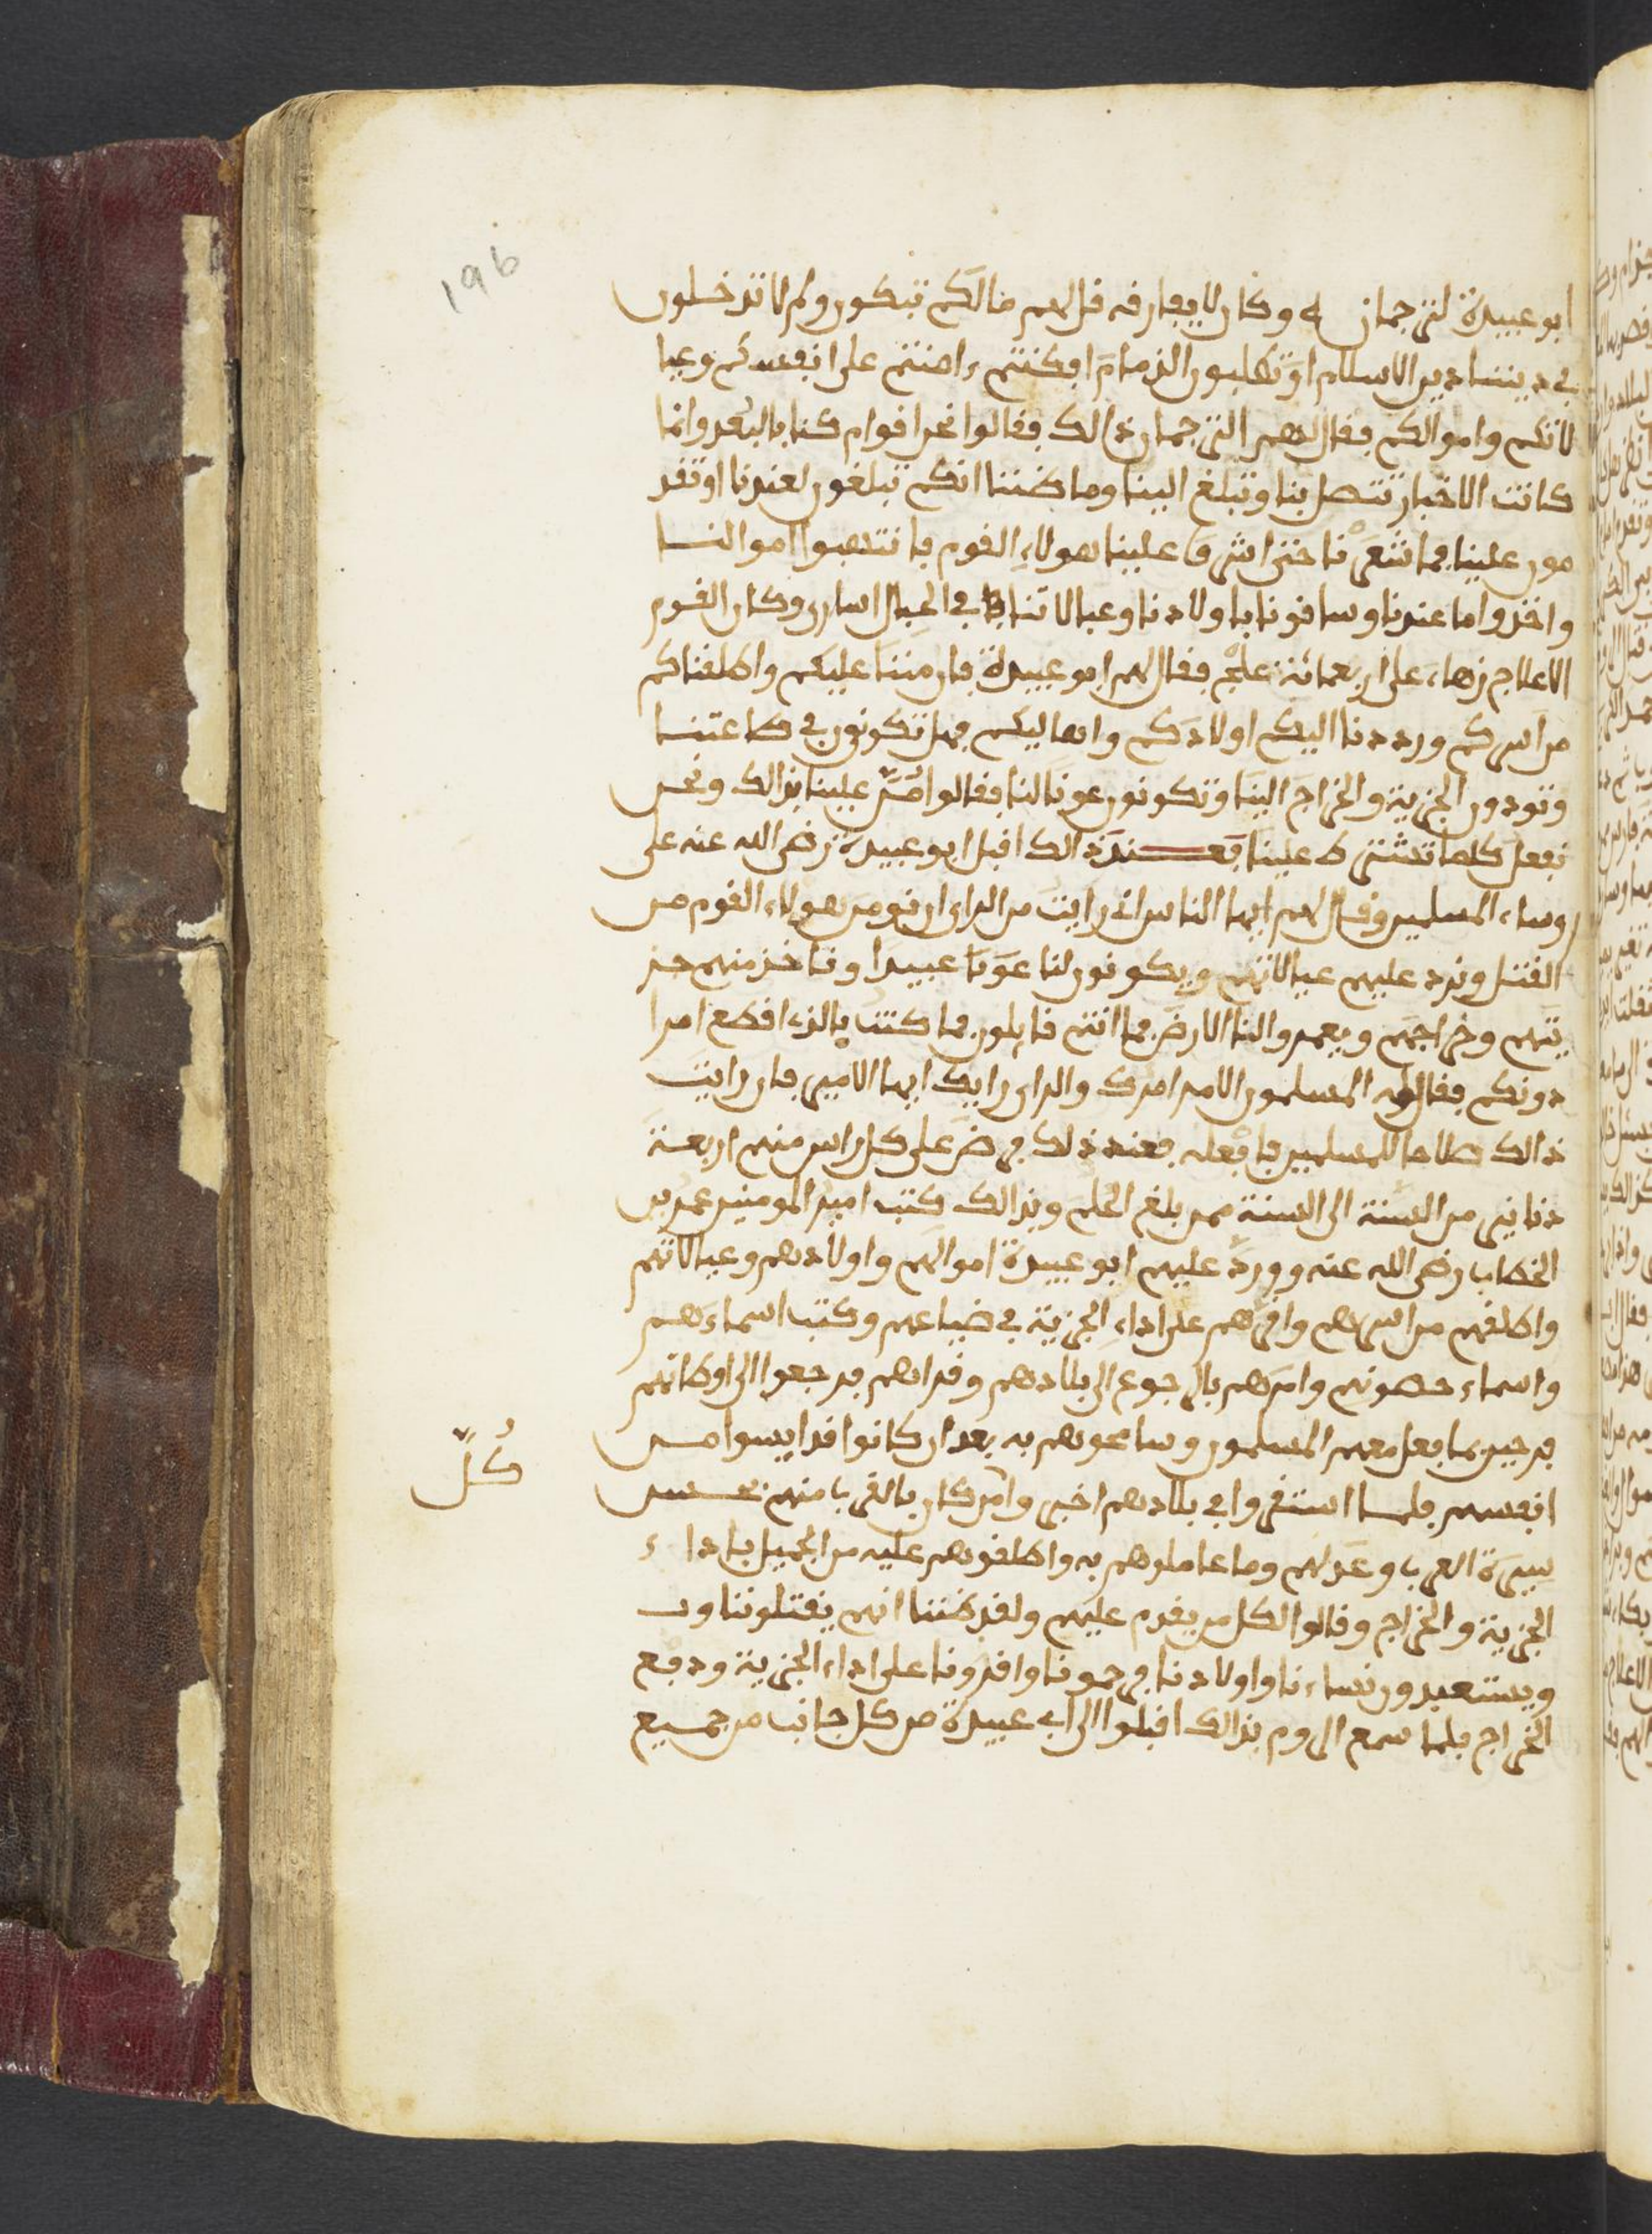 196
ابو عبيدة لترجمان له وكان لا يفارقه قل لهم مالكم تبكون ولم لا تدخلون
في ديننا دين الاسلام او تطلبون الذمام فكنتم ءامنتم على انفسكم وعيا
لاتكم واموالكم فقال لهم الترجمان ذالك فقالوا نحن اقوام كنا بالبعد وانما
كانت الاخبار تتصل بنا وتبلغ الينا وما ظننا انكم تبلغون لعندنا او تقد
مون علينا فما شعرنا حتى اشرف علينا هولاء القوم فانتهبوا اموالنا
واخذوا ما عندنا وساقونا باولادنا وعيالاتنا في الحبال اسارى وكان القوم
الاعلاج زهاء على اربعمائة علج فقال لهم ابو عبيدة فان مننا عليكم واطلقناكم
من اسركم ورددنا اليكم اولادكم واهاليكم فهل تكونون في طاعتنا
وتودون الجزية والخراج الينا وتكونون عونا لنا فقالوا مُنَّ علينا بذالك ونحن
نفعل كلما تشترط علينا فعند ذالك اقبل ابو عبيدة رضي الله عنه على
روساء المسلمين وقال لهم ايها الناس اني رايت من الراي ان نومن هولاء القوم من
القتل ونرد عليهم عيالاتهم ويكونون لنا عونا عبيدا وناخذ منهم جز
يتهم وخراجهم ويعمروا لنا الارض فما انتم قايلون فما كنت بالذي اقطع امرا
دونكم فقال له المسلمون الامر امرك والراي رايك ايها الامير فان رايت
ذالك صلاحا للمسلمين فافعله فعند ذلك فرض على كل راس منهم اربعة
دنانير من السنة الى السنة ممن بلغ الحلم وبذالك كتب امير المومنين عمر بن
الخطاب رضي الله عنه وورد عليهم ابو عبيدة اموالهم واولادهم وعيالاتهم
واطلقهم من اسرهم واقرهم على اداء الجزية في ضياعهم وكتب اسماءهم
واسماء حصونهم وامرهم بالرجوع الى بلادهم وقراهم فرجعوا الى اوطانهم
فرحين بما فعل معهم المسلمون وسامحوهم به بعد ان كانوا قد ايسوا من
انفسهم فلما استقروا في بلادهم اخبروا من كان بالقرب منهم بحسن
سيرة العرب وعدلهم وما عاملوهم به واطلقوهم عليه من الجميل باداء
الجزية والخراج وقالوا لكل من يقدم عليهم ولقد ظننا انهم يقتلوننا و
ويستعبدون نساءنا واولادنا فرحمونا واقرونا على اداء الجزية ودفع
الخراج فلما سمع الروم بذالك اقبلوا الى ابي عبيدة من كل جانب من جميع
كُلّ